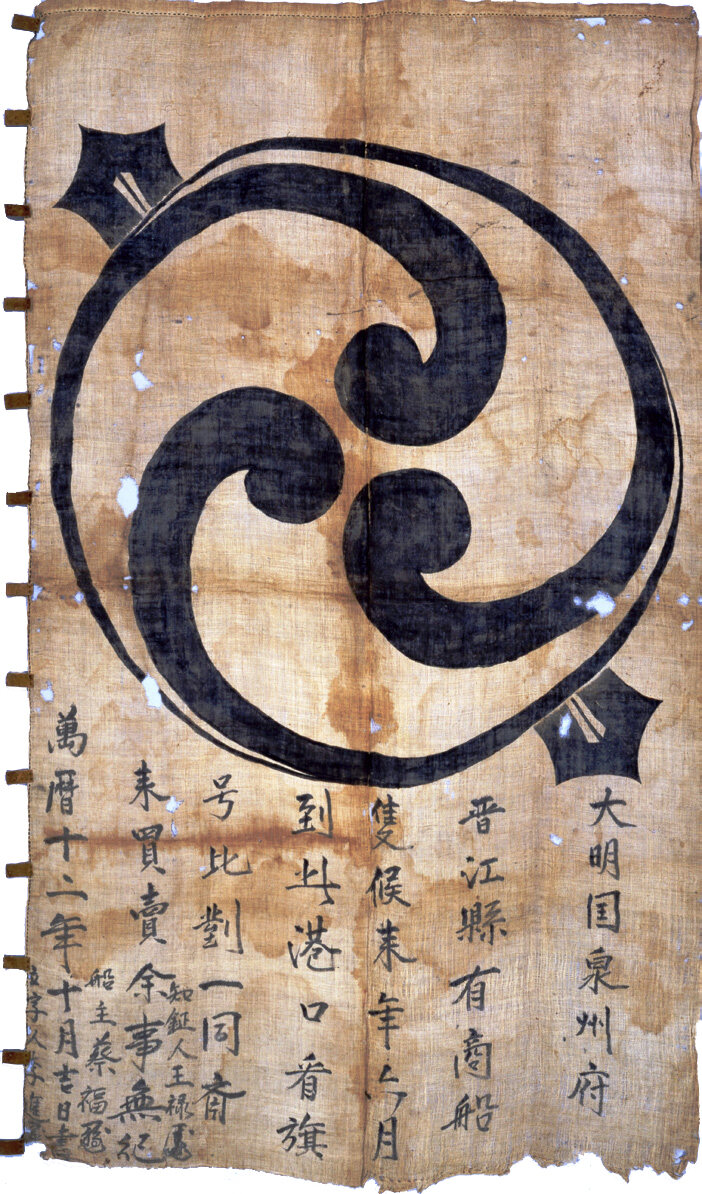 大明国泉州府
晋江縣有商船
隻候来年六月
到此港口看旗
号比對一同齎
来買賣余事無紀
知鉦人王禄
船主蔡福
萬暦十二年十月吉日書